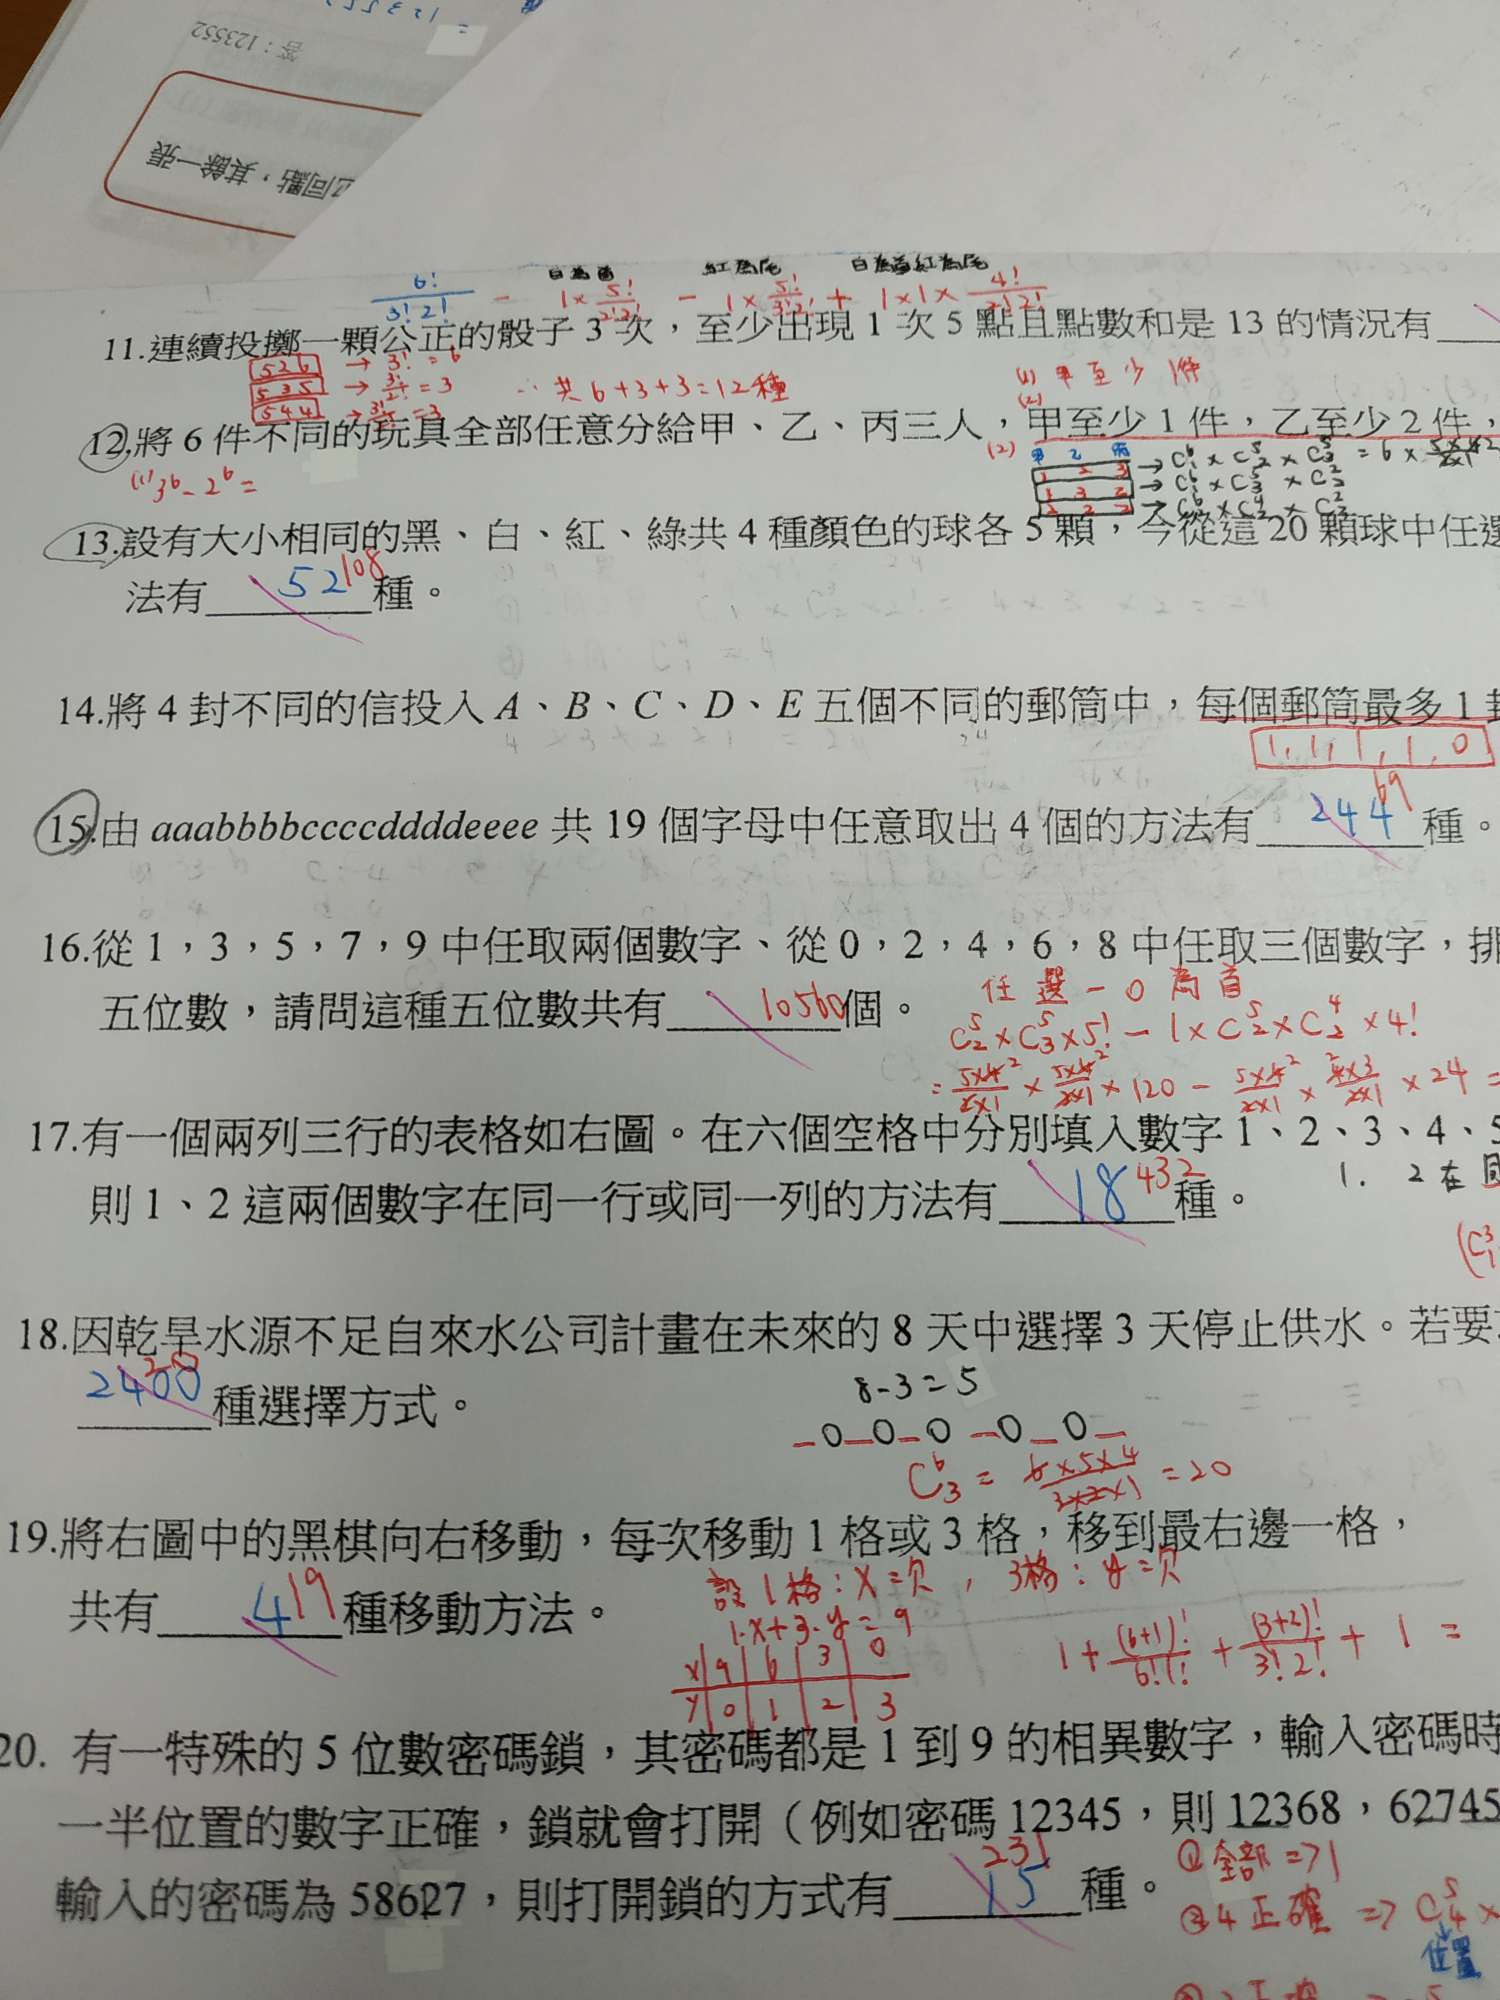 答：123552
己同點，其餘一張
白為首 紅為尾 白為首紅為尾
6!/3!2! - 1×5!/2!2! - 1×5!/3!2! + 1×1×4!/2!2!
11.連續投擲一顆公正的骰子 3 次，至少出現 1 次 5 點且點數和是 13 的情況有
526 → 3! = 6
535 → 3!/2! = 3
544 → 3!/2! = 3
∴共 6+3+3=12種
(1) 甲至少 1件
(2)
12.將 6 件不同的玩具全部任意分給甲、乙、丙三人，甲至少 1 件，乙至少 2 件，
(1) 3^6 - 2^6 =
(2) 甲 乙 丙
1 2 3 → C^6_1 × C^5_2 × C^3_3 = 6 ×
1 3 2 → C^6_1 × C^5_3 × C^2_2
2 2 2 → C^6_2 × C^4_2 × C^2_2
13.設有大小相同的黑、白、紅、綠共 4 種顏色的球各 5 顆，今從這 20 顆球中任選
法有 52 108 種。
14.將 4 封不同的信投入 A、B、C、D、E 五個不同的郵筒中，每個郵筒最多 1 封
1,1,1,1,0
15.由 aaabbbbccccddddeeee 共 19 個字母中任意取出 4 個的方法有 244 69 種。
16.從 1，3，5，7，9 中任取兩個數字、從 0，2，4，6，8 中任取三個數字，排
五位數，請問這種五位數共有 10560 個。
任選 - 0 為首
C^5_2 × C^5_3 × 5! - 1 × C^5_2 × C^4_2 × 4!
= 5×4/2×1 × 5×4/2×1 × 120 - 5×4/2×1 × 4×3/2×1 × 24 =
17.有一個兩列三行的表格如右圖。在六個空格中分別填入數字 1、2、3、4、5
1. 2 在同
則 1、2 這兩個數字在同一行或同一列的方法有 18 432 種。
(C^3_1
18.因乾旱水源不足自來水公司計畫在未來的 8 天中選擇 3 天停止供水。若要
2400 20 種選擇方式。
8-3=5
_0_0_0_0_0_
C^6_3 = 6×5×4/3×2×1 = 20
19.將右圖中的黑棋向右移動，每次移動 1 格或 3 格，移到最右邊一格，
共有 4 19 種移動方法。
設 1格：x=欠，3格：y=欠
1·x+3·y=9
x 9 6 3 0
y 0 1 2 3
1 + (6+1)!/6!1! + (3+2)!/3!2! + 1 =
20. 有一特殊的 5 位數密碼鎖，其密碼都是 1 到 9 的相異數字，輸入密碼時
一半位置的數字正確，鎖就會打開（例如密碼 12345，則 12368，62745
輸入的密碼為 58627，則打開鎖的方式有 15 231 種。
①全部 => 1
②4正確 => C^5_4 ×
位置